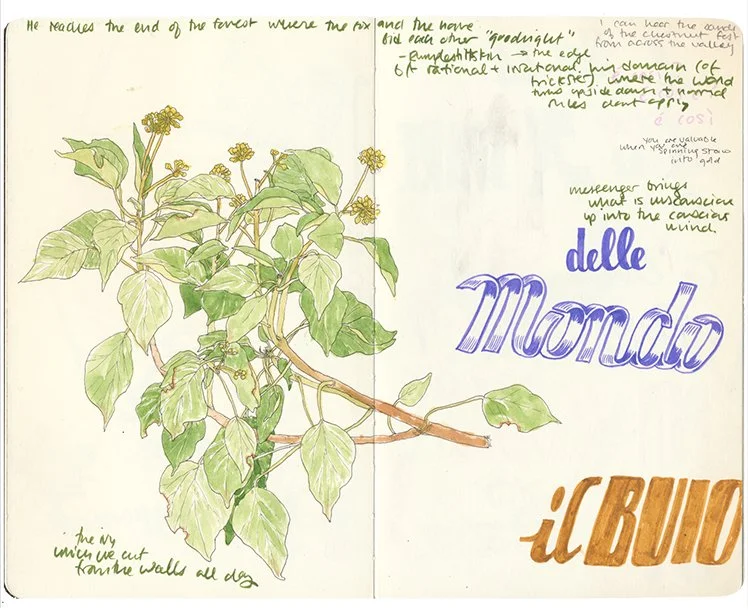 He reaches the end of the forest where the fox and the hare
bid each other "goodnight"
- Rumpelstiltskin → the edge
b/t rational + irrational, his domain (of
trickster) where the world
turns upside down + normal
rules don't apply
I can hear the
of the chestnut fest
from across the valley
è così
you are valuable
when you are spinning straw
into gold
messenger brings
what is unconscious
up into the conscious
mind.
delle
Mondo
il BUIO
the ivy
which we cut
from the walls all day